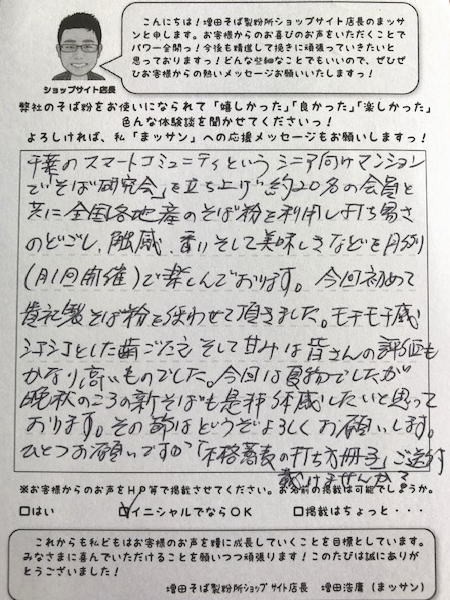 こんにちは!増田そば製粉所ショップサイト店長のまッサ
ンと申します。お客様からのお喜びのお声をいただくことで
パワー全開っ!今後も精進して挽きに頑張っていきたいと
思っておりますっ!どんな些細なことでもいいので、ぜひぜ
ひお客様からの熱いメッセージお願いいたしますっ!
ショップサイト店長
弊社のそば粉をお使いになられて「嬉しかった」「良かった」「楽しかった」
色んな体験談を聞かせてくださいっ!
よろしければ、私「まッサン」への応援メッセージもお願いしますっ!
千葉のスマートコミュニティというシニア向けマンション
で「そば研究会」を立ち上げ 約20名の会員と
共に全国各地産のそば粉を利用し打ち易さ
のどごし、触感、香り そして美味しさなどを月例
(月1回開催)で楽しんでおります。今回初めて
貴社製そば粉を使わせて頂きました。モチモチ感
シコシコとした歯ごたえ そして甘みは皆さんの評価も
かなり高いものでした。今回は夏物でしたが
晩秋のころの新そばも是非体感したいと思って
おります。その節はどうぞよろしくお願いします。
ひとつお願いですが「本格蕎麦の打ち方冊子」ご送付
戴けませんか?
※お客様からのお声をHP等で掲載させてください。お名前の掲載は可能でしょうか。
□はい ☑イニシャルでならOK □掲載はちょっと・・・
これからも私どもはお客様のお声を糧に成長していくことを目標としています。
みなさまに喜んでいただけることを願いつつ頑張ります!このたびは誠にありが
とうございました!
増田そば製粉所ショップサイト店長 増田浩鷹(まッサン)